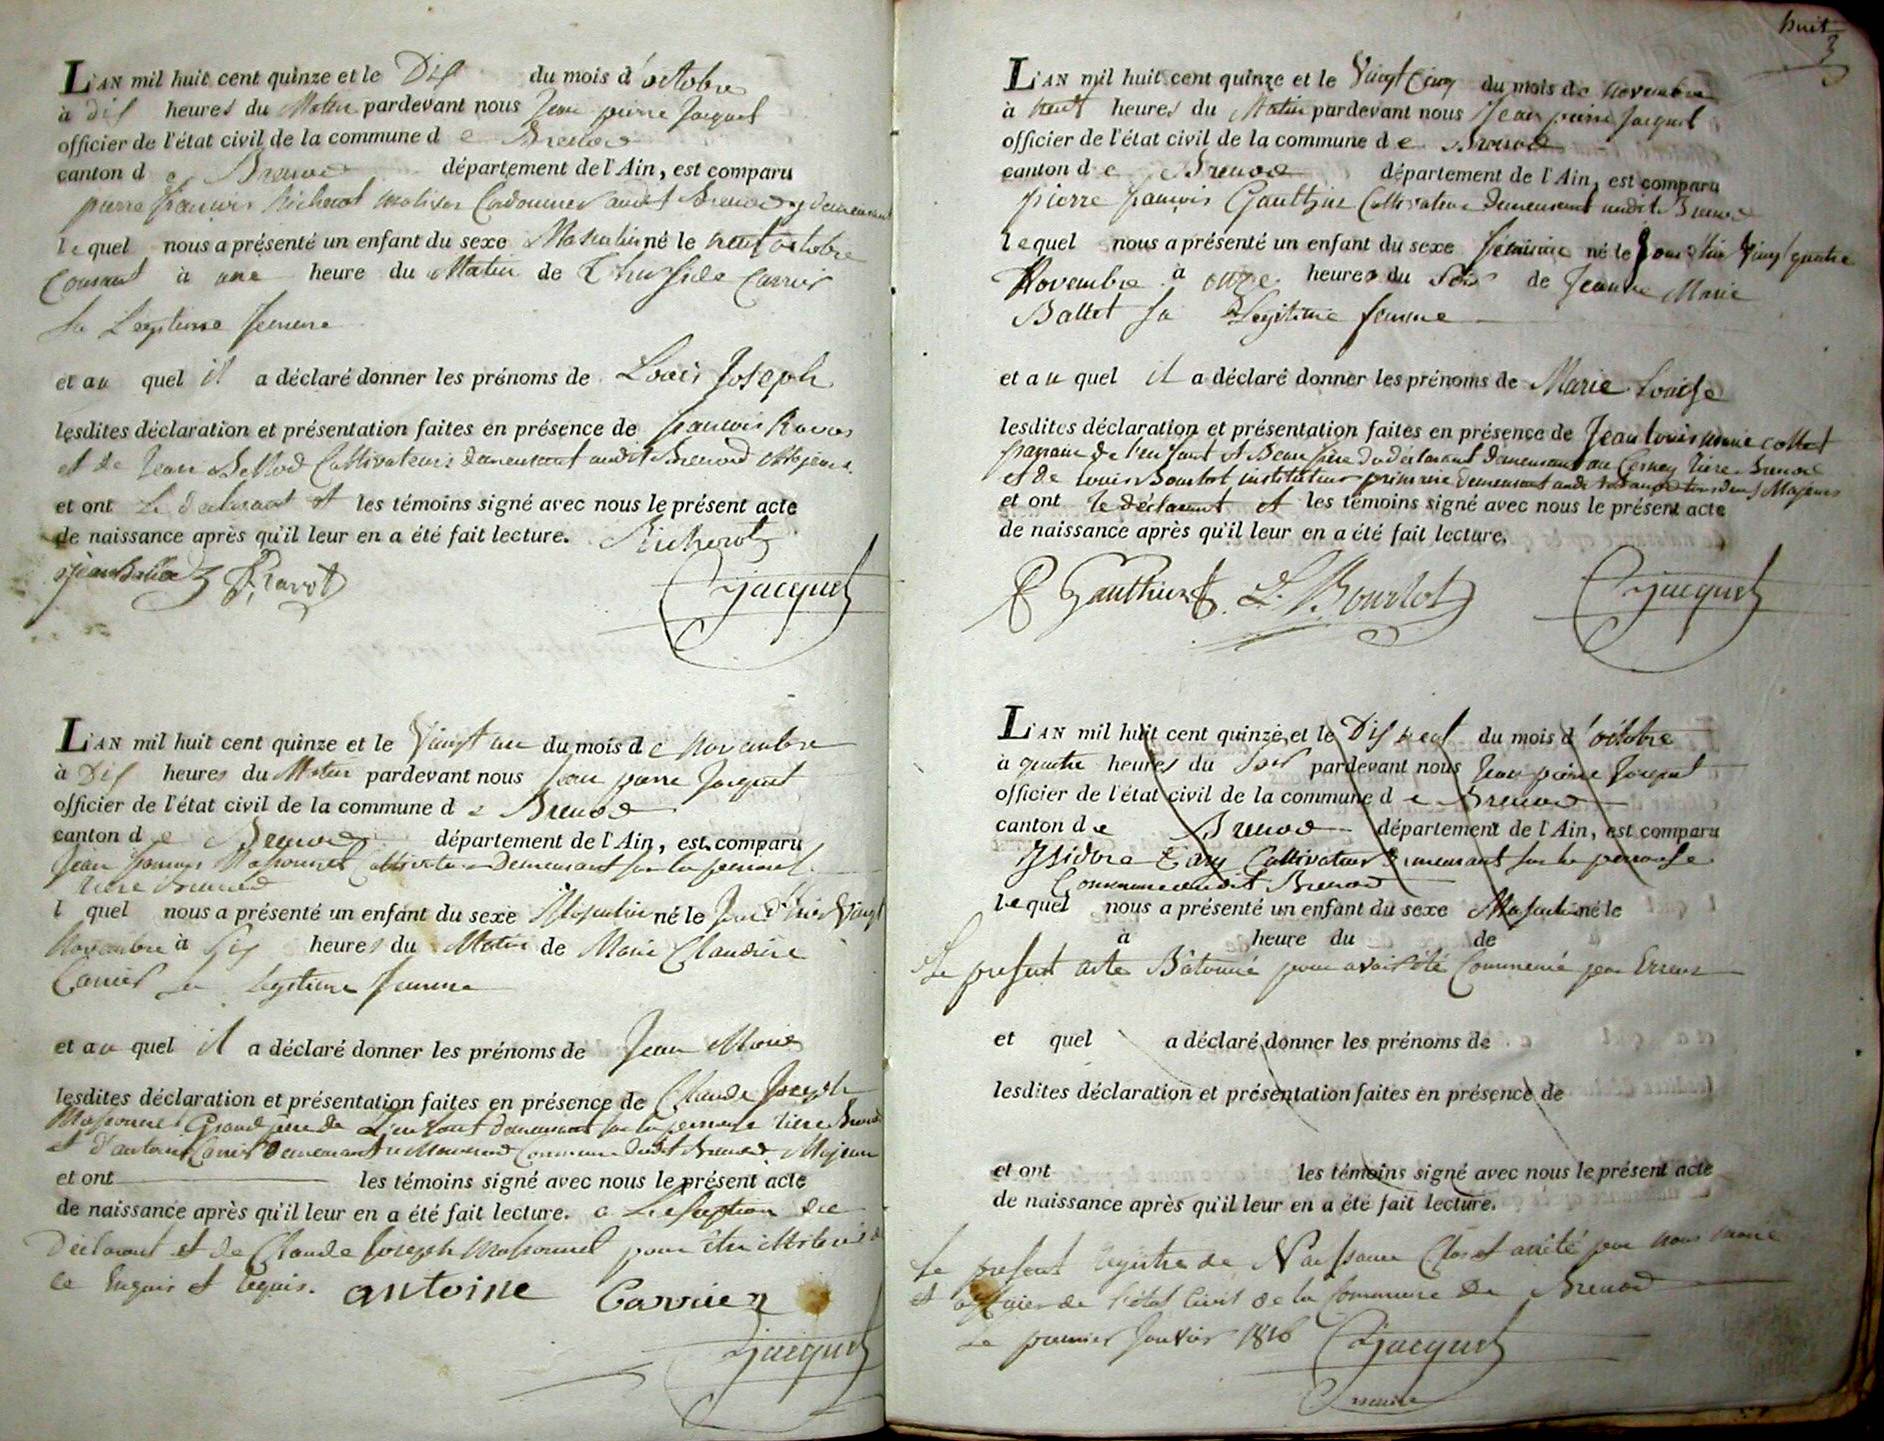 L'AN mil huit cent quinze et le Dix du mois d'octobre
à dix heures du Matin pardevant nous Jean pierre Jacquet
officier de l'état civil de la commune de Brenod
canton de Brenod département de l'Ain, est comparu
pierre françois Richerot Cordonnier audit Brenod y demeurant
lequel nous a présenté un enfant du sexe Masculin né le neuf octobre
Courant à une heure du Matin de Carrier
Sa Legitime femme
et au quel il a déclaré donner les prénoms de Louis Joseph
lesdites déclaration et présentation faites en présence de francois Ravot
et de Jean Cultivateurs demeurant audit Brenod Majeurs
et ont Le declarant et les témoins signé avec nous le présent acte
de naissance après qu'il leur en a été fait lecture. Richerot
Ravot Jacquet
L'AN mil huit cent quinze et le Vingt un du mois de Novembre
à Dix heures du Matin pardevant nous Jean pierre Jacquet
officier de l'état civil de la commune de Brenod
canton de Brenod département de l'Ain, est comparu
Jean Cultivateur Demeurant sur la
riere Brenod
l quel nous a présenté un enfant du sexe Masculin né le Jour d'hier Vingt
Novembre à Six heures du Matin de Marie Claudine
Carrier Sa Legitime femme
et au quel il a déclaré donner les prénoms de Jean Marie
lesdites déclaration et présentation faites en présence de Claude Joseph
Grand pere de L'enfant demeurant sur la riere Brenod
et d'antoine Carrier Demeurant Commune dudit Brenod Majeurs
et ont les témoins signé avec nous le présent acte
de naissance après qu'il leur en a été fait lecture. a L'exception du
Déclarant et de Claude Joseph pour être illiterés de
ce Enquis et requis. antoine Carrier
Jacquet
huit
3
L'AN mil huit cent quinze et le Vingt Cinq du mois de Novembre
à neuf heures du Matin pardevant nous Jean pierre Jacquet
officier de l'état civil de la commune de Brenod
canton de Brenod département de l'Ain, est comparu
pierre françois Gauthier Cultivateur demeurant audit Brenod
lequel nous a présenté un enfant du sexe feminin né le Jour d'hier Vingt quatre
Novembre à onze heures du Soir de Jeanne Marie
Ballet Sa Legitime femme
et au quel il a déclaré donner les prénoms de Marie Louise
lesdites déclaration et présentation faites en présence de Jean Louis Marie
parrain de l'enfant et Beau frère du déclarant demeurant au riere Brenod
et de Louis Bourlot instituteur primaire demeurant audit Brenod tous deux Majeurs
et ont le déclarant et les témoins signé avec nous le présent acte
de naissance après qu'il leur en a été fait lecture.
Gauthier L. Bourlot Jacquet
L'AN mil huit cent quinze et le Dix neuf du mois d'octobre
à quatre heures du Soir pardevant nous Jean pierre Jacquet
officier de l'état civil de la commune de Brenod
canton de Brenod département de l'Ain, est comparu
Isidore Cultivateur Demeurant sur la
Commune dudit Brenod
lequel nous a présenté un enfant du sexe Masculin né le
à heure du de
Le présent acte Bâtonné pour avoir été Commencé par Erreur
et quel a déclaré donner les prénoms de
lesdites déclaration et présentation faites en présence de
et ont les témoins signé avec nous le présent acte
de naissance après qu'il leur en a été fait lecture.
Le présent registre de Naissance Clos et arrêté par nous maire
et officier de l'état Civil de la Commune de Brenod
Le premier Janvier 1816 Jacquet
maire